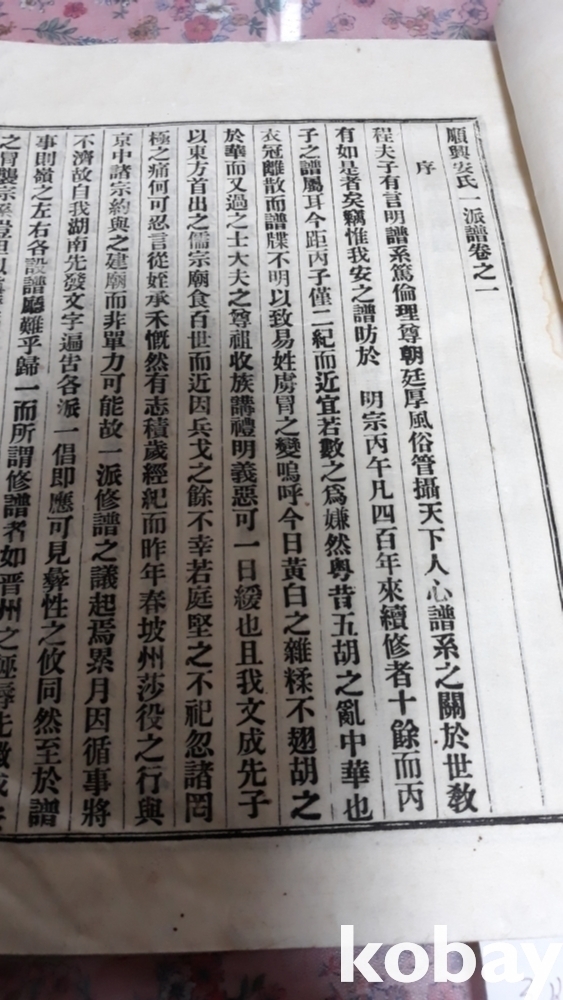 順興安氏一派譜卷之一
序
程夫子有言明譜系篤倫理尊朝廷厚風俗管攝天下人心譜系之關於世教
有如是者矣竊惟我安之譜昉於 明宗丙午凡四百年來續修者十餘而丙
子之譜屬耳今距丙子僅二紀而近宜若數之爲嫌然粤昔五胡之亂中華也
衣冠離散而譜牒不明以致易姓虜冒之變嗚呼今日黃白之雜糅不翅胡之
於華而又過之士大夫之尊祖收族講禮明義惡可一日緩也且我文成先子
以東方首出之儒宗廟食百世而近因兵戈之餘不幸若庭堅之不祀忽諸罔
極之痛何可忍言從姪承禾慨然有志積歲經紀而昨年春坡州莎役之行與
京中諸宗約與之建廟而非單力可能故一派修譜之議起焉累月因循事將
不濟故自我湖南先發文字遍告各派一倡即應可見彝性之攸同然至於譜
事則嶺之左右各設譜廳難乎歸一而所謂修譜者如晋州之
之冒襲宗
kobay